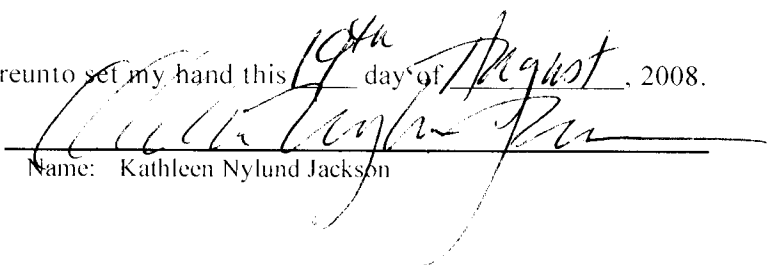 reunto set my hand this 19th day of August, 2008.
Name: Kathleen Nylund Jackson